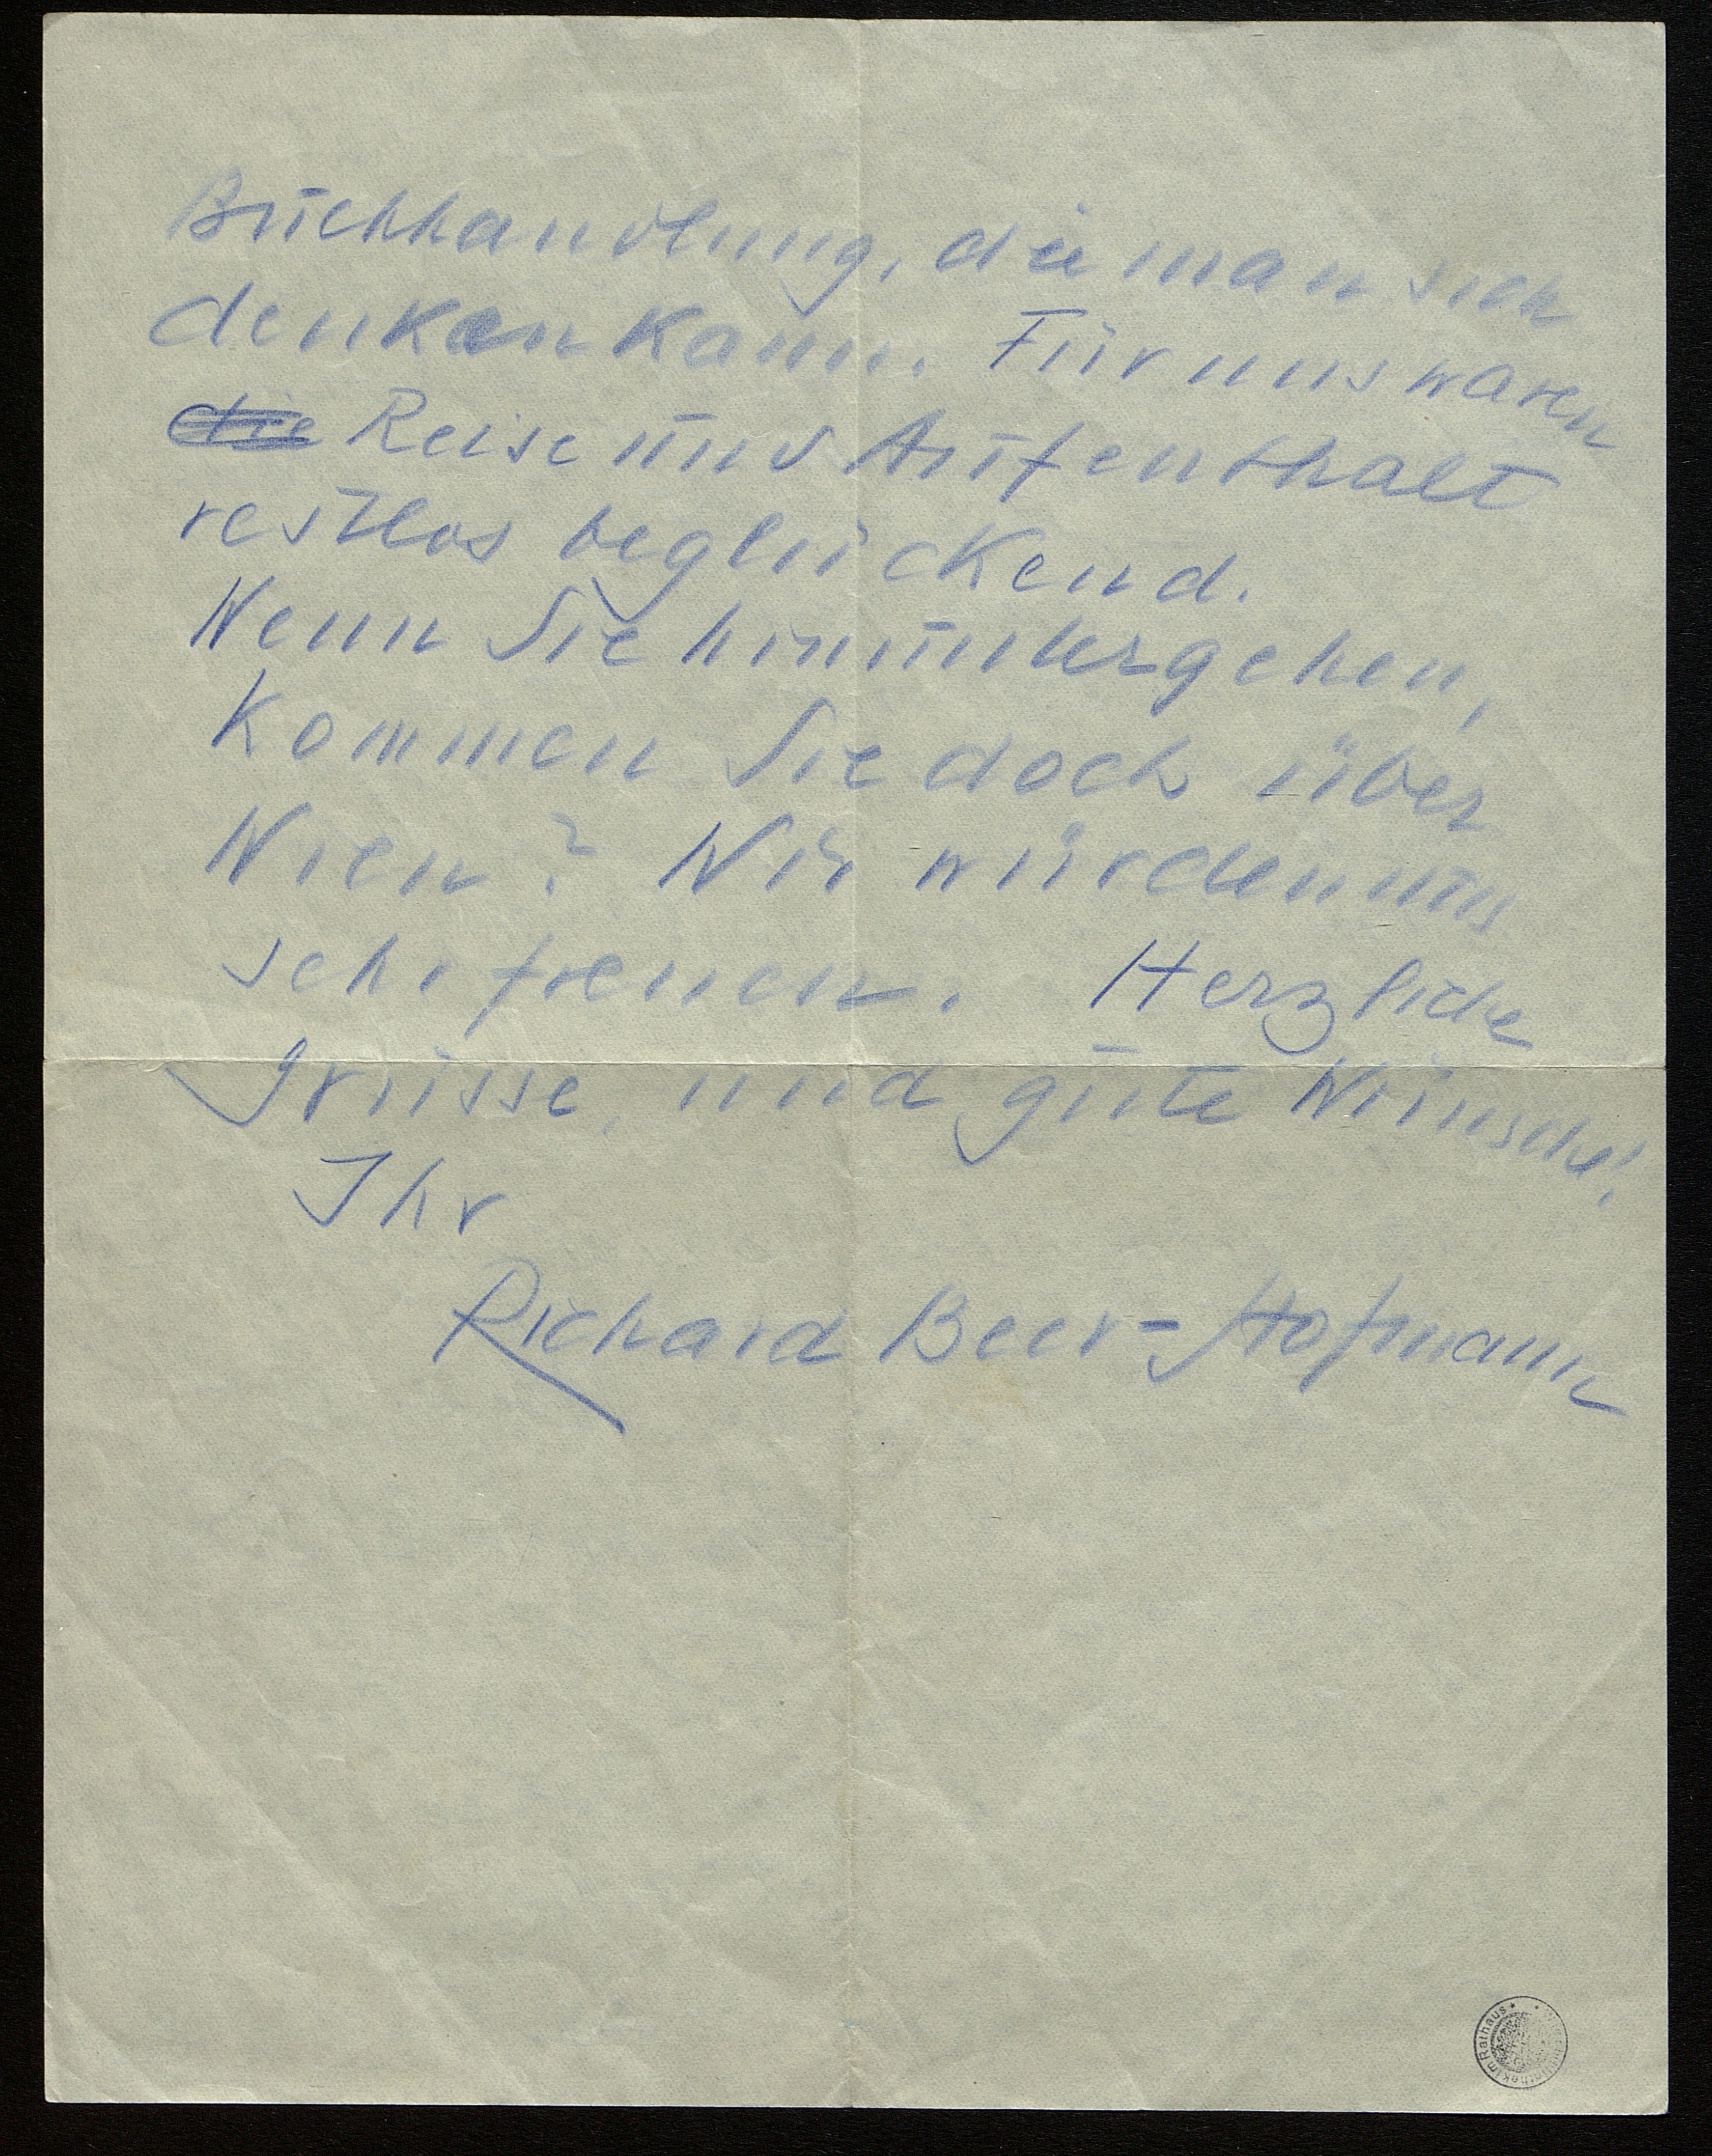 Buchhandlung, die man sich
denken kann. Für uns waren
die Reise und Aufenthalt
restlos beglückend.
Wenn Sie hinuntergehen,
kommen Sie doch über
Wien? Wir würden uns
sehr freuen. Herzliche
Grüsse, und gute Wünsche!
Ihr
Richard Beer-Hofmann
im Rathaus